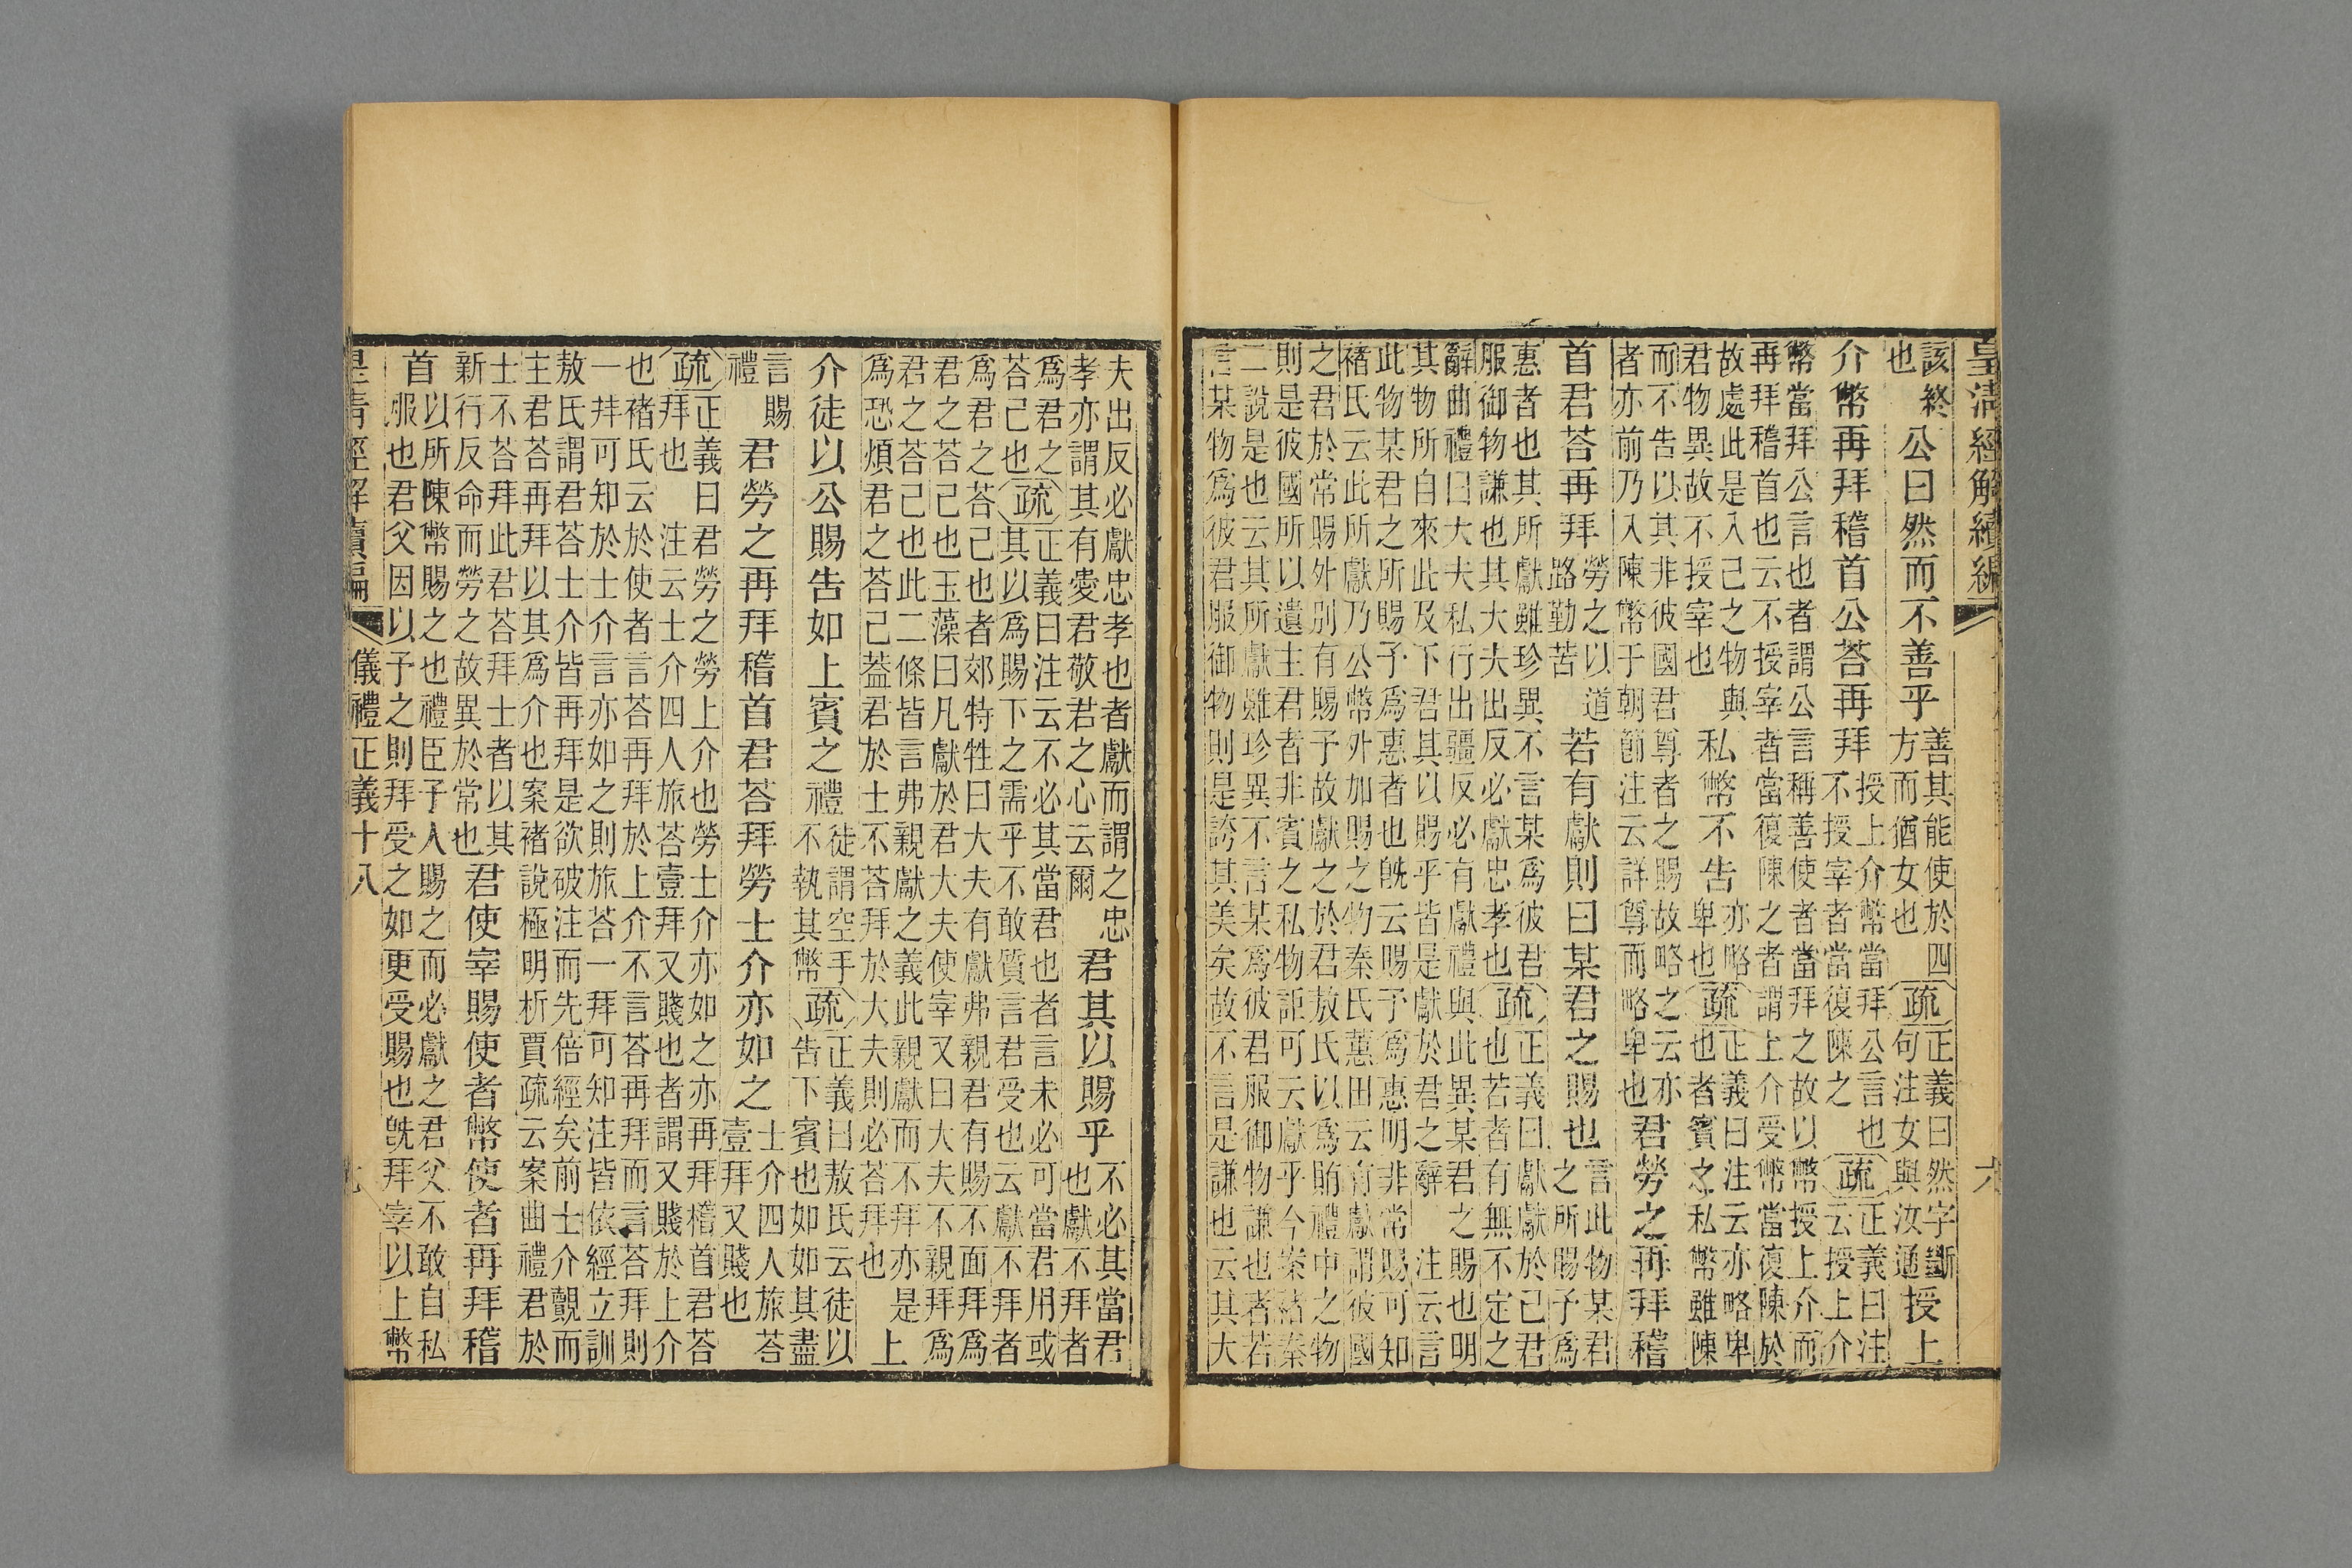 皇清經解續編
該終也公曰然而不善乎善其能使於四方而猶女也疏正義曰然字斷句注女與汝通授上
介幣再拜稽首公荅再拜授上介幣當拜公言也不授宰者當復陳之疏正義曰注云授上介
幣當拜公言也者謂公言稱善使者當拜之故以幣授上介而
再拜稽首也云不授宰者當復陳之者謂上介受幣當復陳於
故處此是入己之物與君物異故不授宰也私幣不告亦略卑也疏正義曰注云亦略卑也者賓之私幣雖陳
而不告以其非彼國君尊者之賜故略之云亦者亦前乃入陳幣于朝節注云詳尊而略卑也君勞之再拜稽
首君荅再拜勞之以道路勤苦若有獻則曰某君之賜也言此物某君之所賜予爲
惠者也其所獻雖珍異不言某爲彼君服御物謙也其大夫出反必獻忠孝也疏正義曰獻獻於己君也若者有無不定之
辭曲禮曰大夫私行出疆反必有獻禮與此異某君之賜也明
其物所自來此及下君其以賜乎皆是獻於君之辭 注云言
此物某君之所賜予爲惠者也旣云賜予爲惠明非常賜可知
褚氏云此所獻乃公幣外加賜之物秦氏蕙田云有獻謂彼國
之君於常賜外別有賜予故獻之於君敖氏以爲賄禮中之物
則是彼國所以遺主君者非賓之私物詎可云獻乎今案褚秦
二說是也云其所獻雖珍異不言某爲彼君服御物謙也者若
言某物爲彼君服御物則是誇其美矣故不言是謙也云其大
夫出反必獻忠孝也者獻而謂之忠孝亦謂其有愛君敬君之心云爾君其以賜乎不必其當君也獻不拜者
爲君之荅己也疏正義曰注云不必其當君也者言未必可當君用或其以爲賜下之需乎不敢質言君受也云獻不拜者
爲君之荅己也者郊特牲曰大夫有獻弗親君有賜不面拜爲
君之荅己也玉藻曰凡獻於君大夫使宰又曰大夫不親拜爲
君之荅己也此二條皆言弗親獻之義此親獻而不拜亦是爲恐煩君之荅己葢君於士不荅拜於大夫則必荅拜也上
介徒以公賜告如上賓之禮徒謂空手不執其幣疏正義曰敖氏云徒以告下賓也如如其盡
言賜禮君勞之再拜稽首君荅拜勞士介亦如之士介四人旅荅壹拜又賤也
疏正義曰君勞之勞上介也勞士介亦如之亦再拜稽首君荅拜也 注云士介四人旅荅壹拜又賤也者謂又賤於上介
也褚氏云於使者言荅再拜於上介不言荅再拜而言荅拜則
一拜可知於士介言亦如之則旅荅一拜可知注皆依經立訓
敖氏謂君荅士介皆再拜是欲破注而先倍經矣前士介覿而
主君荅再拜以其爲介也案褚說極明析賈疏云案曲禮君於
士不荅拜此君荅拜士者以其新行反命而勞之故異於常也君使宰賜使者幣使者再拜稽
首以所陳幣賜之也禮臣子人賜之而必獻之君父不敢自私服也君父因以予之則拜受之如更受賜也旣拜宰以上幣
皇清經解續編 儀禮正義十八